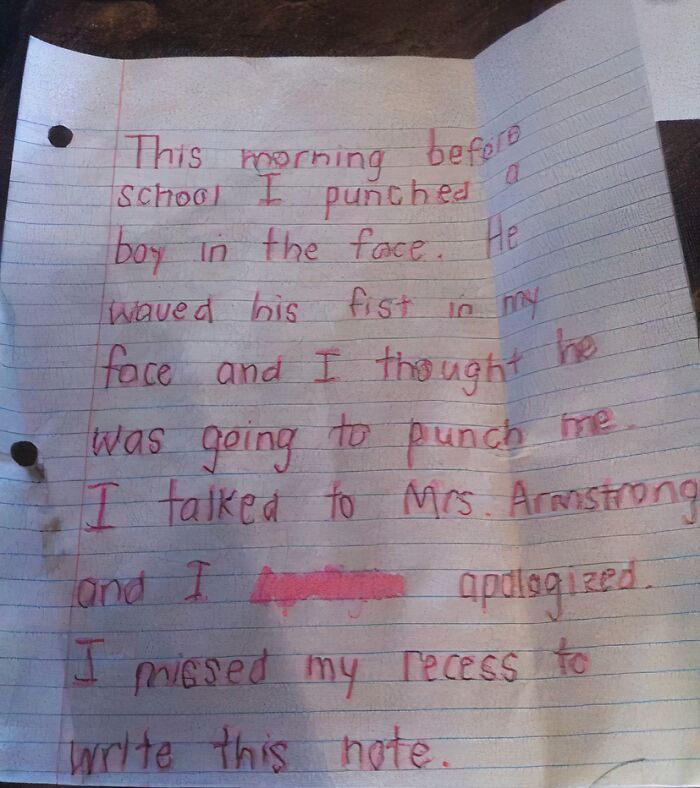 This morning before
school I punched a
boy in the face. He
waved his fist in my
face and I thought he
was going to punch me.
I talked to Mrs. Armstrong
and I apologized.
I missed my recess to
write this note.